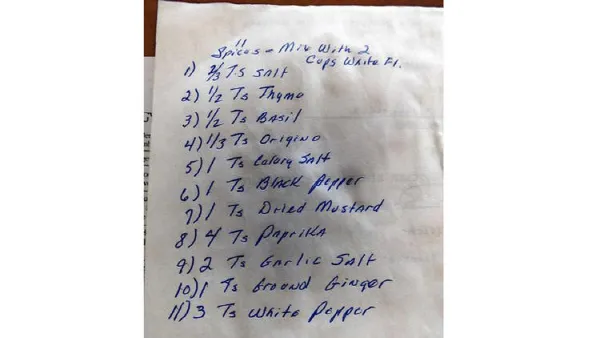 11
Spices - Mix With 2
Cups White Fl.
1) 2/3 Ts SAlt
2) 1/2 Ts Thyme
3) 1/2 Ts BASil
4) 1/3 Ts Origino
5) 1 Ts Celery SAlt
6) 1 Ts BlAck Pepper
7) 1 Ts Dried Mustard
8) 4 Ts PApriKA
9) 2 Ts GArlic SAlt
10) 1 Ts Ground Ginger
11) 3 Ts White Pepper